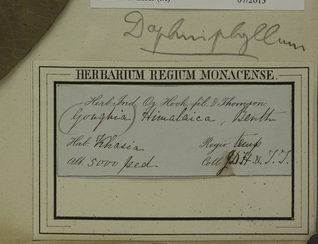 07/2013
Daphniphyllum
HERBARIUM REGIUM MONACENSE.
Herb. Ind. Or. Hook. fil. & Thomson
Goughia Himalaica, Benth
Hab. Khasia Regio temp
Alt. 5000 ped. Coll. J.D.H. & T.T.